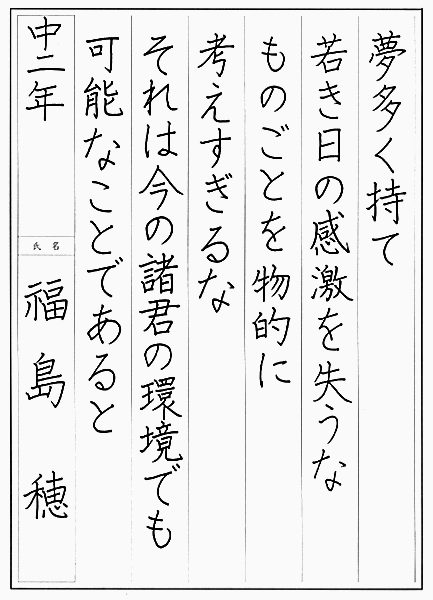 夢多く持て
若き日の感激を失うな
ものごとを物的に
考えすぎるな
それは今の諸君の環境でも
可能なことであると
中二年
氏名
福島 穂